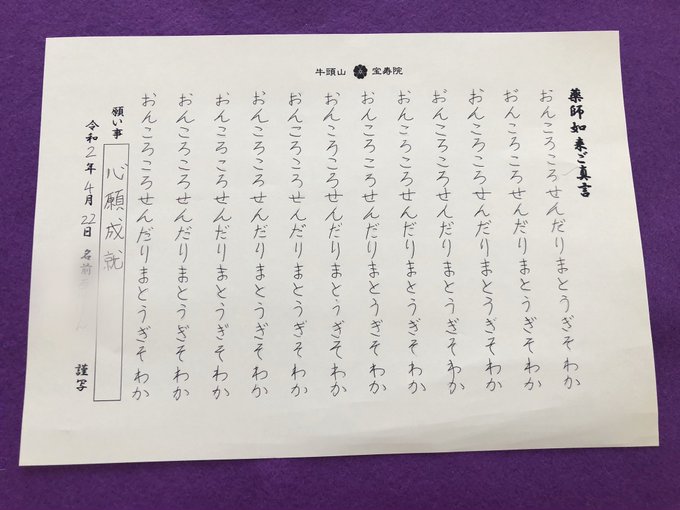 牛頭山 宝寿院
薬師如来ご真言
おんころころせんだりまとうぎそわか
おんころころせんだりまとうぎそわか
おんころころせんだりまとうぎそわか
おんころころせんだりまとうぎそわか
おんころころせんだりまとうぎそわか
おんころころせんだりまとうぎそわか
おんころころせんだりまとうぎそわか
おんころころせんだりまとうぎそわか
おんころころせんだりまとうぎそわか
おんころころせんだりまとうぎそわか
おんころころせんだりまとうぎそわか
おんころころせんだりまとうぎそわか
願い事 心願成就
令和2年4月22日 名前 謹写